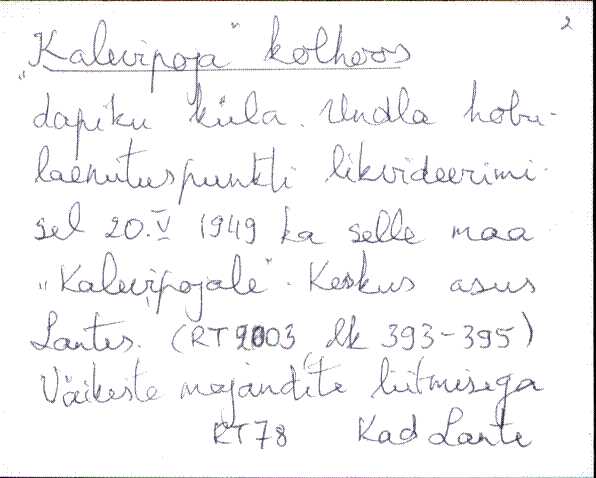 2
"Kalevipoja" kolhoos
Lapiku küla. Undla hobu-
laenutuspunkti likvideerimi-
sel 20. V 1949 ka selle maa
"Kalevipojale". Keskus asus
Lantes. (RT 2003, lk 393-395)
Väikeste majandite liitmisega
RT 78 Kad Lante